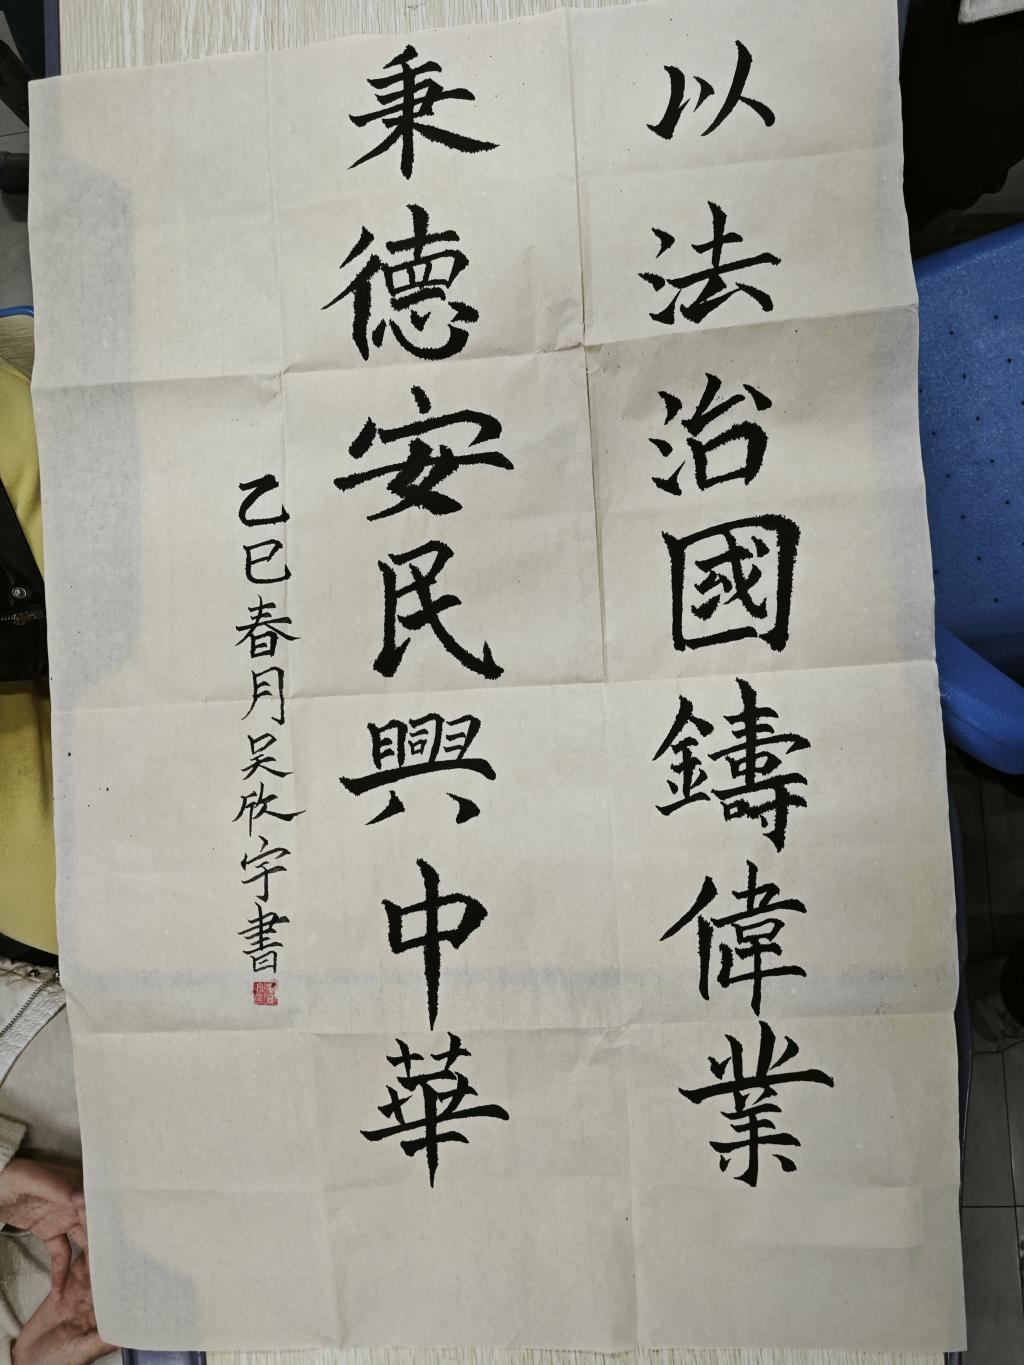 以法治國鑄偉業
秉德安民興中華
乙巳春月吴欣宇書